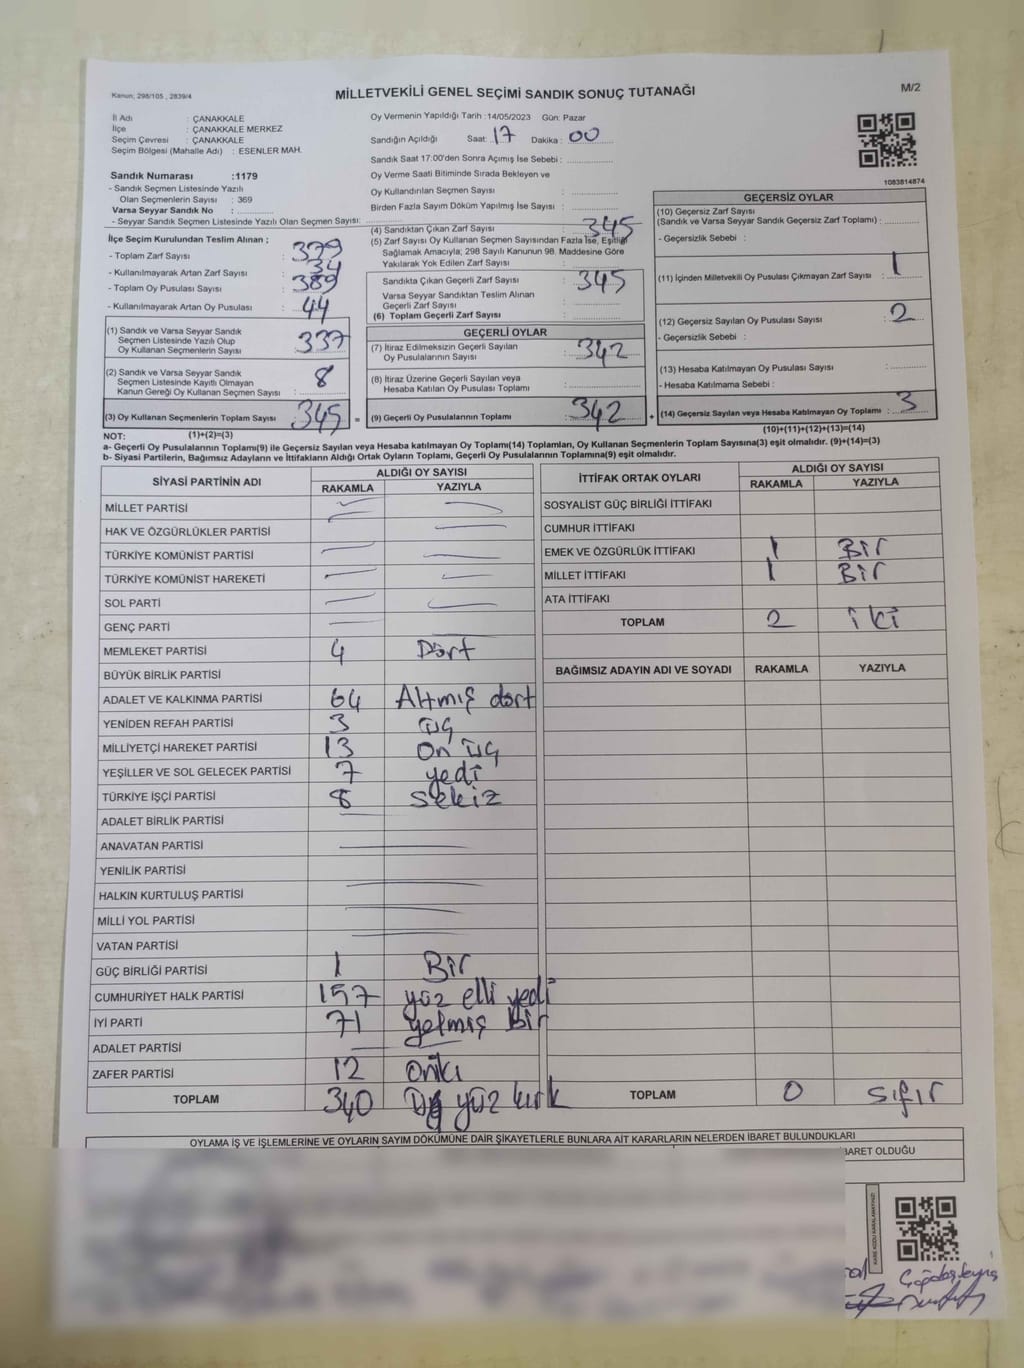 Kanun; 298/105 , 2839/4
MİLLETVEKİLİ GENEL SEÇİMİ SANDIK SONUÇ TUTANAĞI
M/2
İl Adı : ÇANAKKALE
İlçe : ÇANAKKALE MERKEZ
Seçim Çevresi : ÇANAKKALE
Seçim Bölgesi (Mahalle Adı) : ESENLER MAH.
Oy Vermenin Yapıldığı Tarih :14/05/2023 Gün: Pazar
Sandığın Açıldığı Saat: 17 Dakika: 00
Sandık Saat 17:00'den Sonra Açımış İse Sebebi :
Oy Verme Saati Bitiminde Sırada Bekleyen ve
Oy Kullandırılan Seçmen Sayısı :
Birden Fazla Sayım Döküm Yapılmış İse Sayısı :
1083814874
Sandık Numarası :1179
- Sandık Seçmen Listesinde Yazılı
Olan Seçmenlerin Sayısı : 369
Varsa Seyyar Sandık No :
- Seyyar Sandık Seçmen Listesinde Yazılı Olan Seçmen Sayısı:
İlçe Seçim Kurulundan Teslim Alınan ;
- Toplam Zarf Sayısı : 379
- Kullanılmayarak Artan Zarf Sayısı : 34
- Toplam Oy Pusulası Sayısı : 389
- Kullanılmayarak Artan Oy Pusulası : 44
(1) Sandık ve Varsa Seyyar Sandık
Seçmen Listesinde Yazılı Olup
Oy Kullanan Seçmenlerin Sayısı : 337
(2) Sandık ve Varsa Seyyar Sandık
Seçmen Listesinde Kayıtlı Olmayan
Kanun Gereği Oy Kullanan Seçmenlerin Sayısı : 8
(3) Oy Kullanan Seçmenlerin Toplam Sayısı : 345 =
(1)+(2)=(3)
(4) Sandıktan Çıkan Zarf Sayısı : 345
(5) Zarf Sayısı Oy Kullanan Seçmen Sayısından Fazla İse, Eşitliği
Sağlamak Amacıyla; 298 Sayılı Kanunun 98. Maddesine Göre
Yakılarak Yok Edilen Zarf Sayısı :
Sandıkta Çıkan Geçerli Zarf Sayısı : 345
Varsa Seyyar Sandıktan Teslim Alınan
Geçerli Zarf Sayısı :
(6) Toplam Geçerli Zarf Sayısı :
GEÇERLİ OYLAR
(7) İtiraz Edilmeksizin Geçerli Sayılan
Oy Pusulalarının Sayısı : 342
(8) İtiraz Üzerine Geçerli Sayılan veya
Hesaba Katılan Oy Pusulası Toplamı :
(9) Geçerli Oy Pusulalarının Toplamı : 342 +
GEÇERSİZ OYLAR
(10) Geçersiz Zarf Sayısı
(Sandık ve Varsa Seyyar Sandık Geçersiz Zarf Toplamı) :
- Geçersizlik Sebebi :
(11) İçinden Milletvekili Oy Pusulası Çıkmayan Zarf Sayısı : 1
(12) Geçersiz Sayılan Oy Pusulası Sayısı : 2
- Geçersizlik Sebebi :
(13) Hesaba Katılmayan Oy Pusulası Sayısı :
- Hesaba Katılmama Sebebi :
(14) Geçersiz Sayılan veya Hesaba Katılmayan Oy Toplamı : 3
(10)+(11)+(12)+(13)=(14)
NOT:
a- Geçerli Oy Pusulalarının Toplamı(9) ile Geçersiz Sayılan veya Hesaba katılmayan Oy Toplamı(14) Toplamları, Oy Kullanan Seçmenlerin Toplam Sayısına(3) eşit olmalıdır. (9)+(14)=(3)
b- Siyasi Partilerin, Bağımsız Adayların ve İttifakların Aldığı Ortak Oyların Toplamı, Geçerli Oy Pusulalarının Toplamına(9) eşit olmalıdır.
SİYASİ PARTİNİN ADI ALDIĞI OY SAYISI
RAKAMLA YAZIYLA
MİLLET PARTİSİ
HAK VE ÖZGÜRLÜKLER PARTİSİ
TÜRKİYE KOMÜNİST PARTİSİ
TÜRKİYE KOMÜNİST HAREKETİ
SOL PARTİ
GENÇ PARTİ
MEMLEKET PARTİSİ 4 Dört
BÜYÜK BİRLİK PARTİSİ
ADALET VE KALKINMA PARTİSİ 64 Altmış dört
YENİDEN REFAH PARTİSİ 3 üç
MİLLİYETÇİ HAREKET PARTİSİ 13 On üç
YEŞİLLER VE SOL GELECEK PARTİSİ 7 yedi
TÜRKİYE İŞÇİ PARTİSİ 8 sekiz
ADALET BİRLİK PARTİSİ
ANAVATAN PARTİSİ
YENİLİK PARTİSİ
HALKIN KURTULUŞ PARTİSİ
MİLLİ YOL PARTİSİ
VATAN PARTİSİ
GÜÇ BİRLİĞİ PARTİSİ 1 Bir
CUMHURİYET HALK PARTİSİ 157 yüz elli yedi
İYİ PARTİ 71 yetmiş Bir
ADALET PARTİSİ
ZAFER PARTİSİ 12 oniki
TOPLAM 340 yüz kırk
İTTİFAK ORTAK OYLARI ALDIĞI OY SAYISI
RAKAMLA YAZIYLA
SOSYALIST GÜÇ BİRLİĞİ İTTİFAKI
CUMHUR İTTİFAKI
EMEK VE ÖZGÜRLÜK İTTİFAKI 1 Bir
MİLLET İTTİFAKI 1 Bir
ATA İTTİFAKI
TOPLAM 2 iki
BAĞIMSIZ ADAYIN ADI VE SOYADI RAKAMLA YAZIYLA
TOPLAM 0 sıfır
OYLAMA İŞ VE İŞLEMLERİNE VE OYLARIN SAYIM DÖKÜMÜNE DAİR ŞİKAYETLERLE BUNLARA AİT KARARLARIN NELERDEN İBARET BULUNDUKLARI
BARET OLDUĞU
KARE KODU KARALAMAYINIZ!